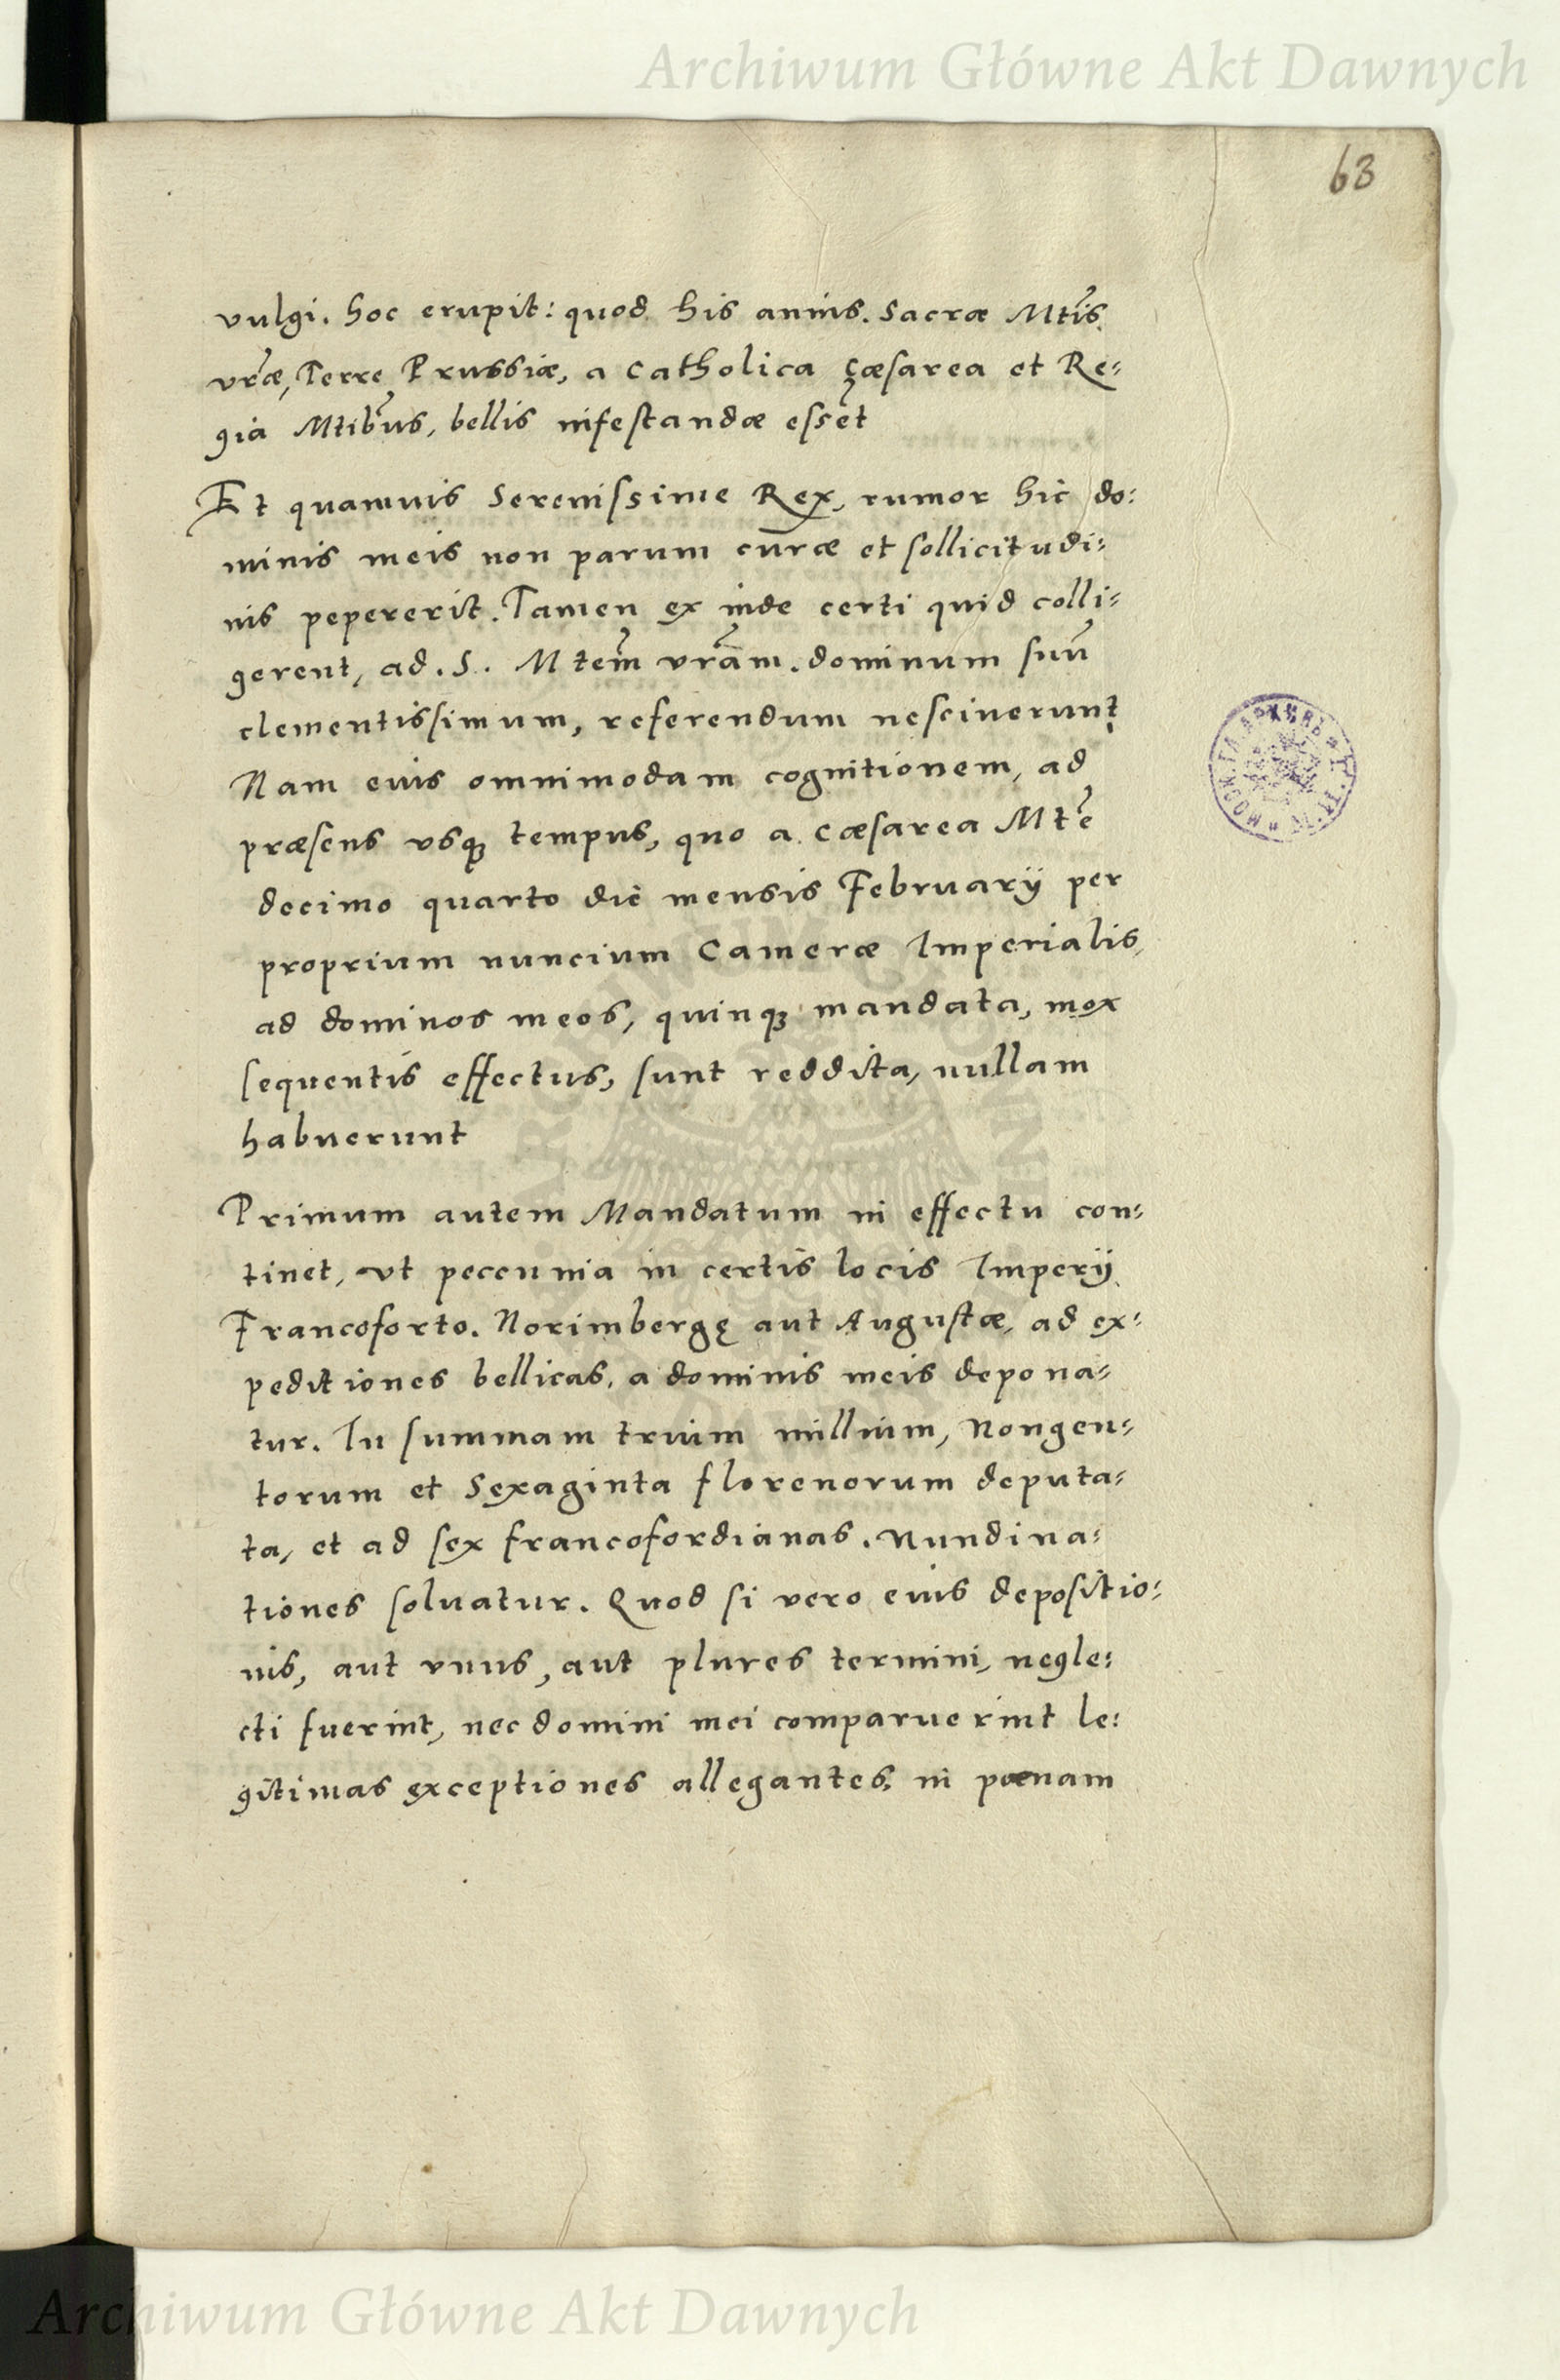 Archiwum Główne Akt Dawnych
63
vulgi. hoc erupit: quod his annis. Sacræ Mtis
vræ, Terre Prussiæ, a Catholica Cæsarea et Re-
gia Mtibus, bellis infestandæ essēt
Et quamuis Serenissime Rex, rumor hic do-
minis meis non parum curæ et sollicitudi-
nis pepererit. Tamen ex inde certi quid colli-
gerent, ad. S. Mtem vram. dominum suū
clementissimum, referendum nesciuerunt
Nam euis omnimodam cognitionem, ad
præsens vsqȝ tempus, quo a Cæsarea Mte
decimo quarto die mensis Februarij per
proprium nuncium Cameræ Imperialis,
ad dominos meos, quinqȝ mandata, mox
sequentis effectus, sunt reddita, nullam
habuerunt
Primum autem Mandatum in effectu con-
tinet, vt peccunia in certis locis Imperij
Francoforto. Norimbergę aut Augustæ, ad ex-
peditiones bellicas, a dominis meis depona-
tur. In summam trium millium, Nongen-
torum et Sexaginta florenorum deputa-
ta, et ad sex francofordianas. Nundina-
tiones soluatur. Quod si vero euis depositio-
nis, aut vnus, aut plures termini, negle-
cti fuerint, nec domini mei comparuerint le-
gitimas exceptiones allegantes, in pœnam
Archiwum Główne Akt Dawnych